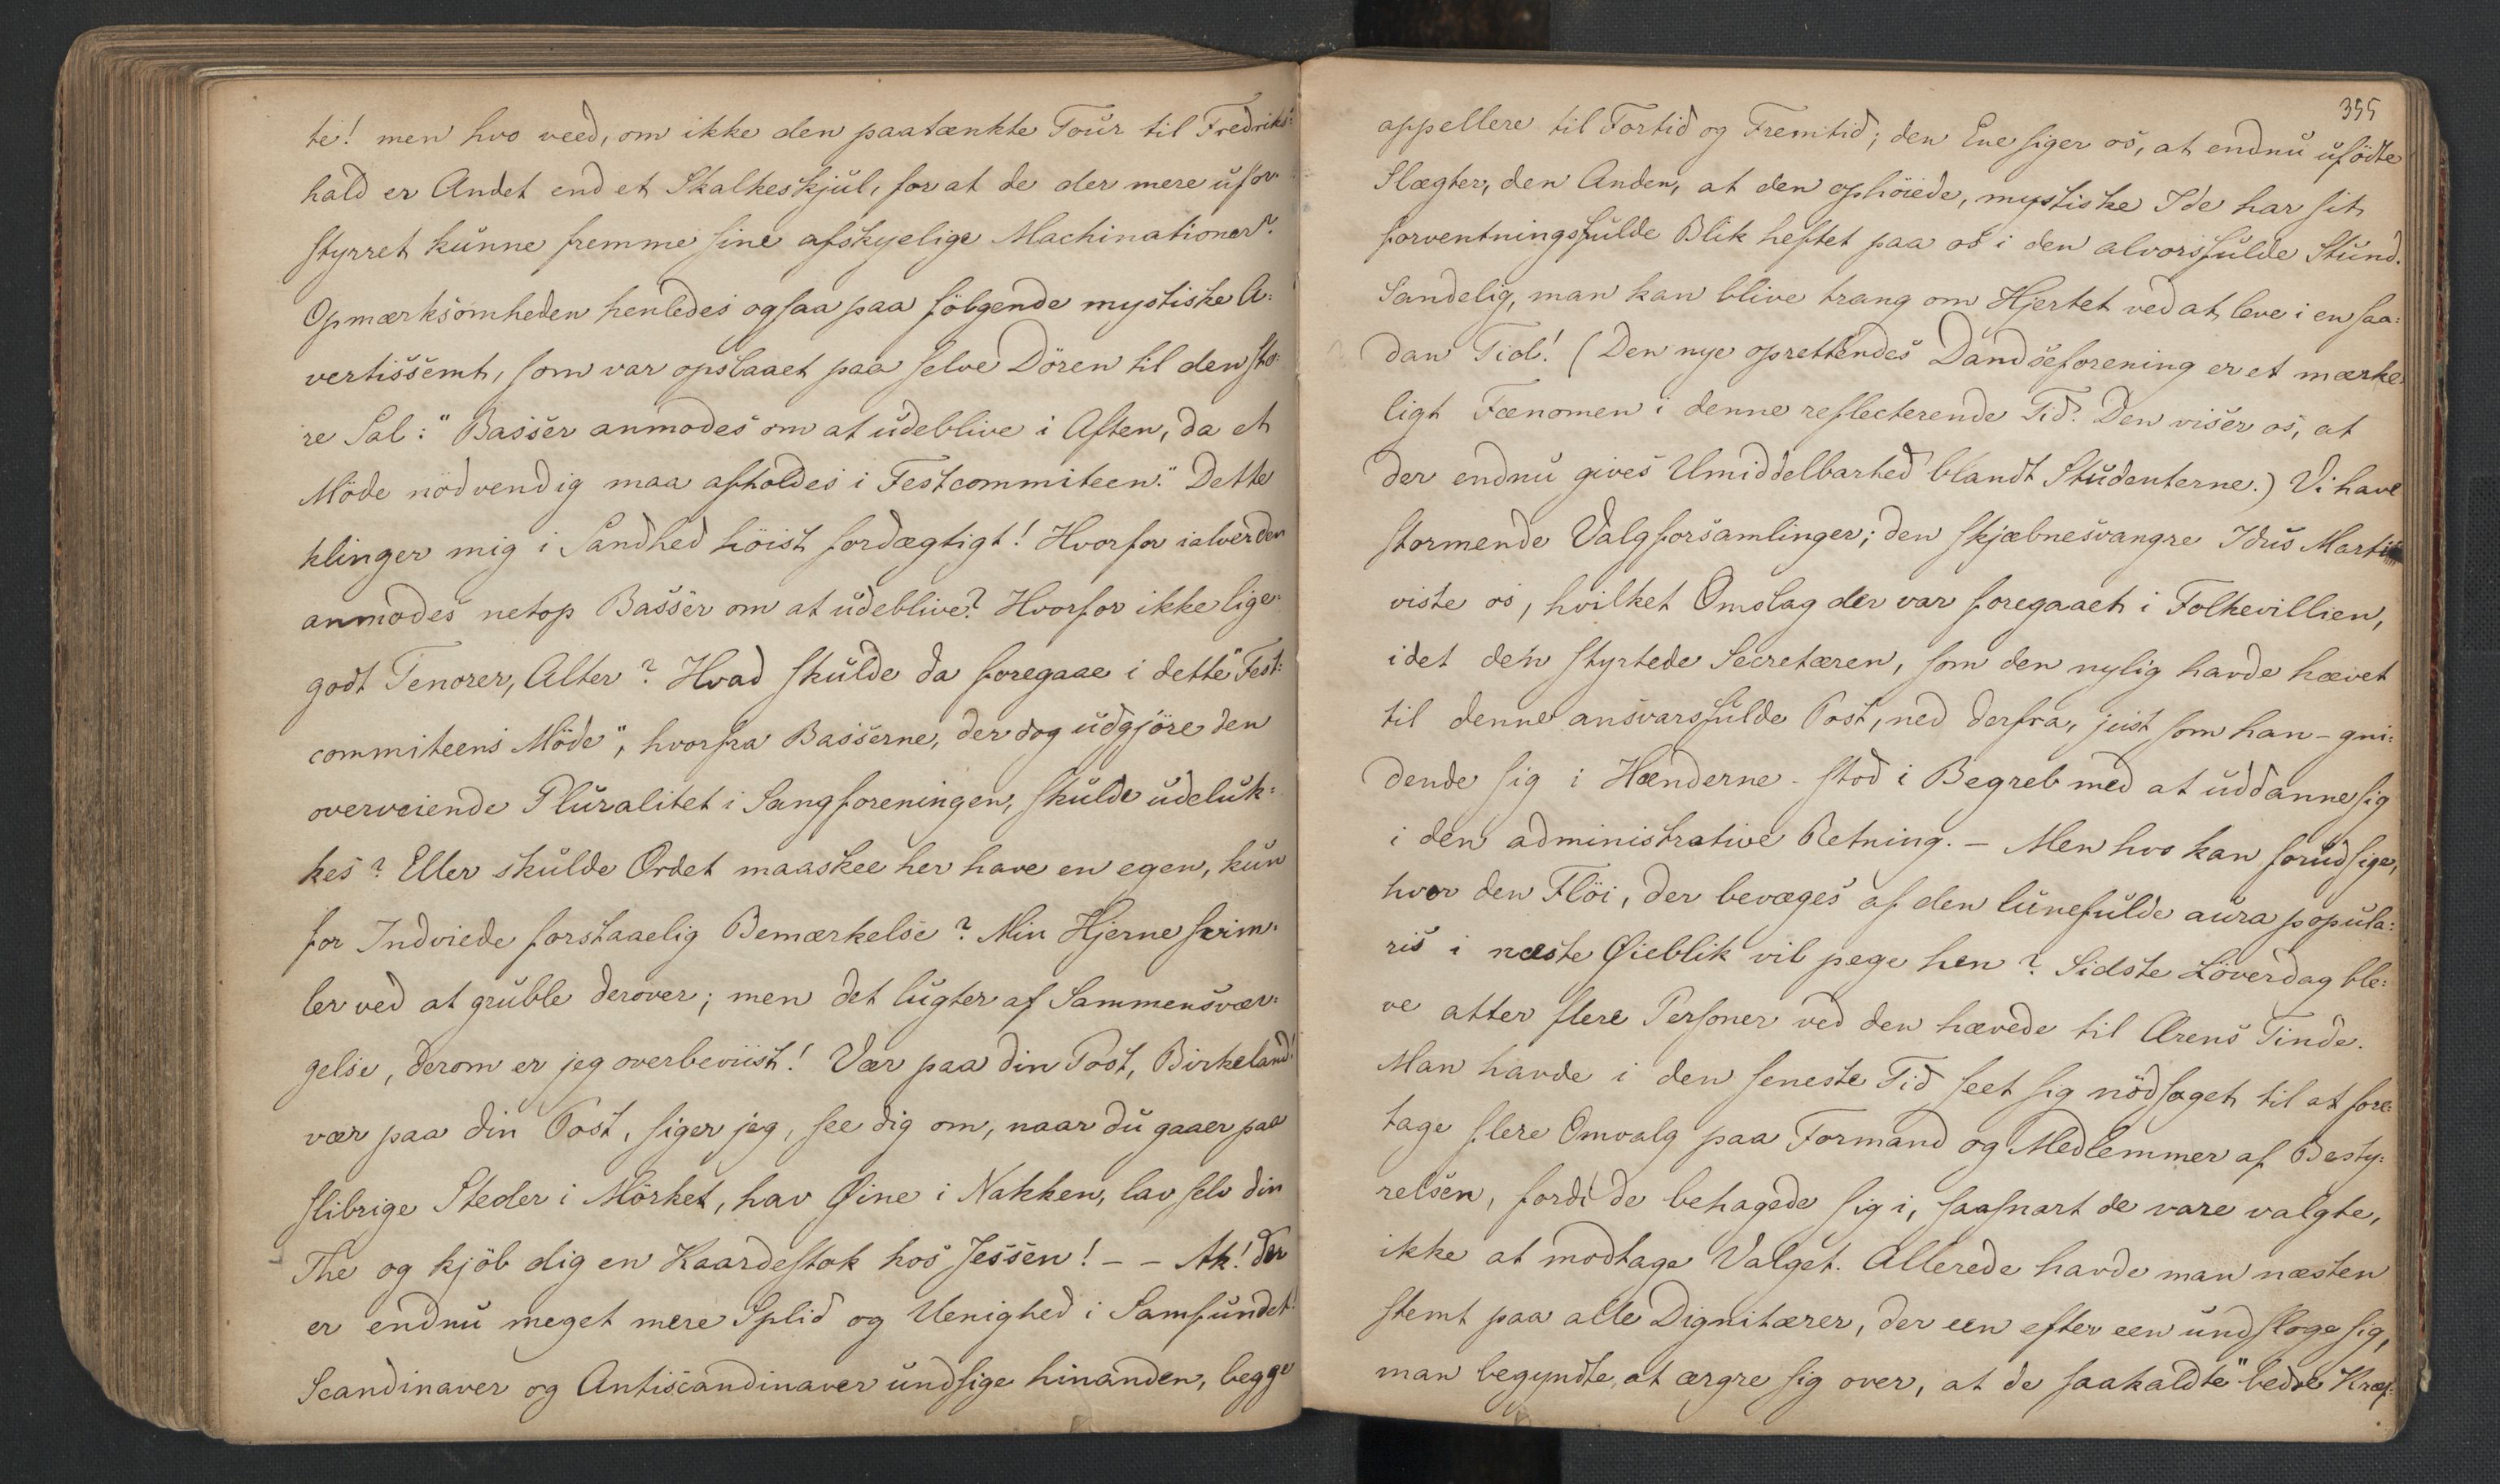 te! men hvo veed, om ikke den paatænkte Tour til Fredriks:
hald er Andet end et Skalkeskjul, for at de der mere ufor:
styrret kunne fremme sine afskyelige Machinationer?
Opmærksomheden henledes ogsaa paa følgende mystiske A:
vertissemt, som var opslaaet paa selve Dören til den stö:
re Sal: "Basser anmodes om at udeblive i Aften, da et
Möde nödvendig maa afholdes i Festcommiteen." Dette
klinger mig i Sandhed höist fordægtigt! Hvorfor ialverden
anmodes netop Basser om at udeblive? Hvorfor ikke lige:
godt Tenorer, Alter? Hvad skulde da foregaae i dette "Fest:
commiteens Möde", hvorfra Basserne, der dog udgjöre den
overveiende Pluralitet i Sangforeningen, skulde udeluk:
kes? Eller skulde Ordet maaskee her have en egen, kun
for Indviede forstaaelig Bemærkelse? Min Hjerne svim:
ler ved at gruble derover; men det lugter af Sammensvær:
gelse, derom er jeg overbeviist! Vær paa din Post, Birkeland!
vær paa din Post, siger jeg, see dig om, naar du gaaer paa
slibrige Steder i Mörket, hav Øine i Nakken, lav selv din
The og kjöb dig en Kaardestok hos Jessen! – – Ak! der
er endnu meget mere Splid og Uenighed i Samfundet!
Scandinaver og Antiscandinaver undsige hinanden, begge
355
appellere til Fortid og Fremtid; den Ene siger os, at endnu ufödte
Slægter, den Anden, at den ophöiede, mystiske Ide har sit
forventningsfulde Blik heftet paa os i den alvorsfulde Stund.
Sandelig, man kan blive trang om Hjertet ved at leve i en saa:
dan Tid! (Den nye oprettendes Dandseforening er et mærke:
ligt Fænomen i denne reflecterende Tid. Den viser os, at
der endnu gives Umiddelbarhed blandt Studenterne.) Vi have
stormende Valgforsamlinger; den skjæbnesvangre Idus Martii
viste os, hvilket Omslag der var foregaaet i Folkevillien,
idet den styrtede Secretæren, som den nylig havde hævet
til denne ansvarsfulde Post, ned derfra, just som han – gni:
dende sig i Hænderne – stod i Begreb med at uddanne sig
i den administrative Retning. – Men hvo kan forudsige,
hvor den Flöi, der bevæges af den lunefulde aura popula:
ris i næste Øieblik vil pege hen? Sidste Löverdag ble:
ve atter flere Personer ved den hævede til Ærens Tinde.
Man havde i den seneste Tid seet sig nödsaget til at fore:
tage flere Omvalg paa Formand og Medlemmer af Besty:
relsen, fordi de behagede sig i, saasnart de vare valgte,
ikke at modtage Valget. Allerede havde man næsten
stemt paa alle Dignitærer, der een efter een undsloge sig,
man begyndte at ærgre sig over, at de saakaldte "bedre Kræf: